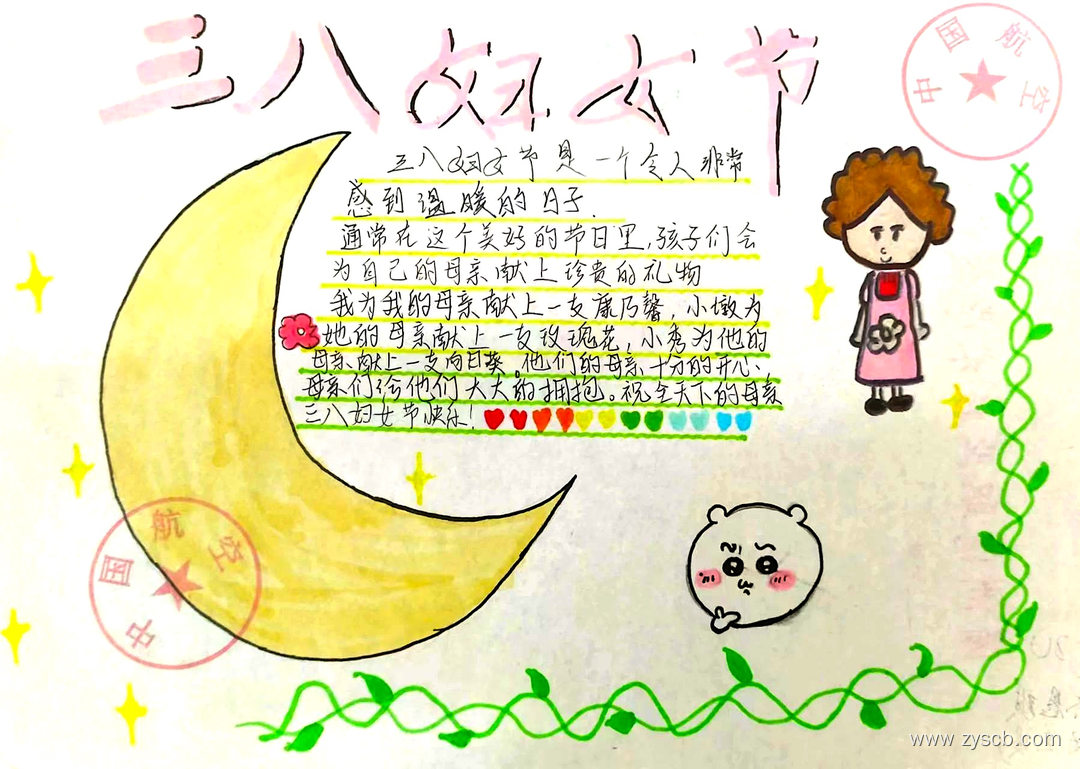 三八妇女节
三八妇女节是一个令人非常
感到温暖的日子.
通常在这个美好的节日里,孩子们会
为自己的母亲献上珍贵的礼物
我为我的母亲献上一支康乃馨,小墩为
她的母亲献上一支玫瑰花,小秀为他的
母亲献上一支向日葵。他们的母亲十分的开心,
母亲们给他们大大的拥抱。祝全天下的母亲
三八妇女节快乐!
中国航空
中国航空
www.zyscb.com